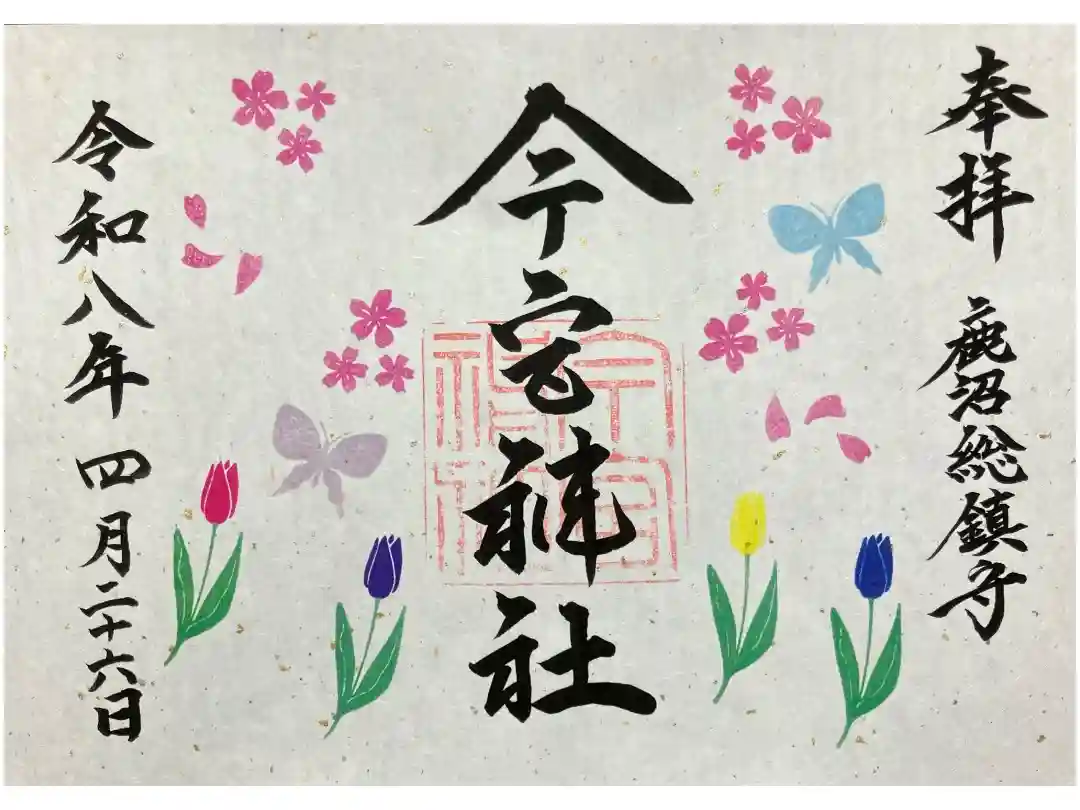 奉拝 鹿沼総鎮守
今宮神社
令和八年 四月二十六日
今宮神社